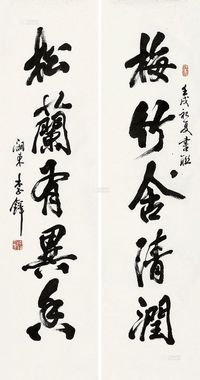 梅竹含清潤
壬戌初夏書聯
松蘭有異香
湖東李鐸